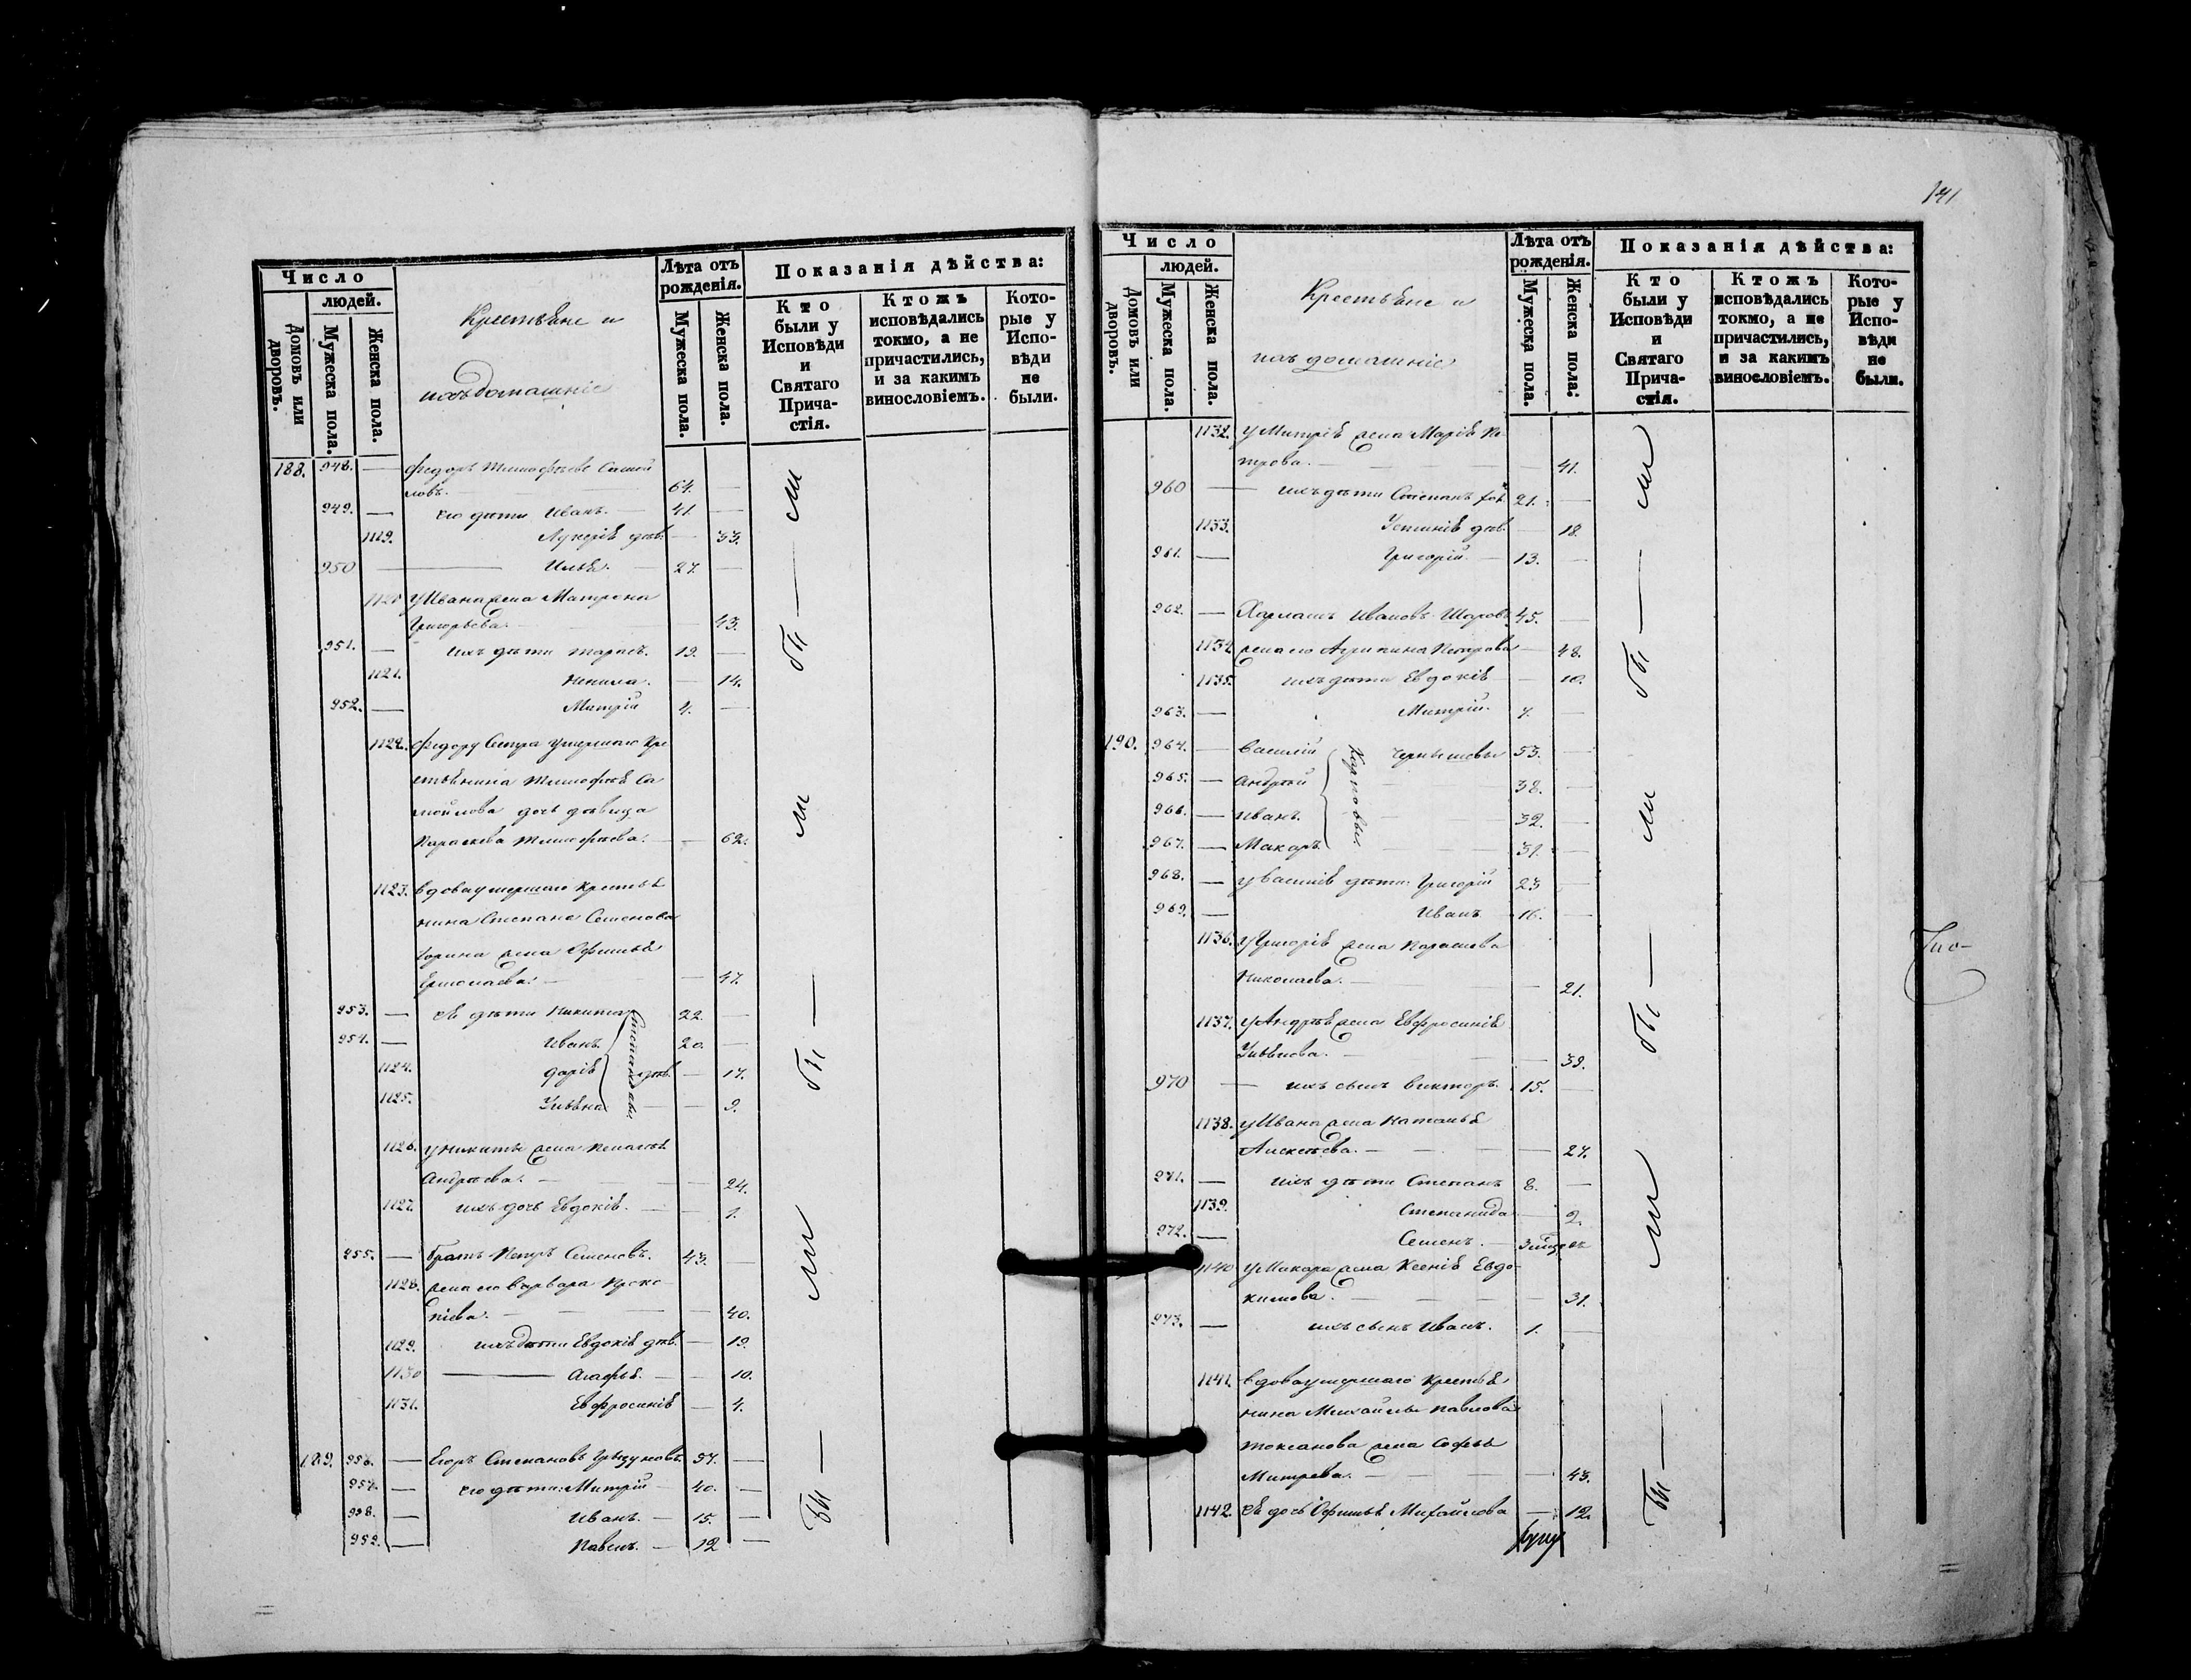 Число
людей.
Домовъ или дворовъ.
Мужеска пола.
Женска пола.
Крестьяне и
ихъ домашніе
Лѣта отъ рожденія.
Мужеска пола.
Женска пола.
Показанія дѣйства:
Кто были у Исповѣди и Святаго Причастія.
Ктожъ исповѣдались токмо, а не причастились, и за какимъ винословіемъ.
Которые у Исповѣди не были.
188. 948. — Федоръ Тимофѣевъ Самой
ловъ. — 64. —
949. — его дѣти Иванъ. — 41. —
1119. Лукерія дѣв. — 33.
950 — Илья. — 27. —
1120 у Ивана жена Матрона
Григорьева. — 43.
951. — ихъ дѣти Тарасъ. 19. —
1121. Ненила. — 14.
952. — Митрій 4. —
1122. Федору сестра умершаго кре
стьянина Тимофѣя Са
мойлова дочь дѣвица
Параскева Тимофѣева. — 62.
1123. вдова умершаго крестья
нина Степана Семенова
жена Офимья
Ермолаева. — 47.
953. — ея дѣти Никита 22. —
954. — Иванъ 20. —
1124. Дарія дѣв. — 17.
1125. Ульяна — 9.
Степановы
1126. у Никиты жена Пелагѣя
Андрѣева. — 24.
1127. ихъ дочь Евдокія. — 1.
955. — братъ Петръ Семеновъ. 43. —
1128. жена его Варвара Проко
піева. — 40.
1129. ихъ дѣти Евдокія дѣв. — 19.
1130 — Агафья. — 10.
1131. Евфросинія — 4.
189. 956. — Егоръ Степановъ 57. —
957. — его дѣти: Митрій — 40. —
958. — Иванъ. — 15. —
959. — Павелъ. — 12 —
Бы — ли
Бы — ли
Бы — ли
141
Число
людей.
Домовъ или дворовъ.
Мужеска пола.
Женска пола.
Крестьяне и
ихъ домашніе
Лѣта отъ рожденія.
Мужеска пола.
Женска пола.
Показанія дѣйства:
Кто были у Исповѣди и Святаго Причастія.
Ктожъ исповѣдались токмо, а не причастились, и за какимъ винословіемъ.
Которые у Исповѣди не были.
1132. у Митрія жена Марія Пе
трова. — 41.
960 — ихъ дѣти Степанъ 21. —
1133. Устинія дѣв. — 18.
961. — Григорій — 13. —
962. — Харлампъ Ивановъ Шаровъ 45. —
1134. жена его Агрипина Петрова — 48.
1135. ихъ дѣти Евдокія — 10.
963. — Митрій. 7. —
190. 964. — Василій Чернышевы 53. —
965. — Андрѣй — 38. —
966. — Иванъ. — 32. —
967. — Макаръ. — 31. —
Карповы
968. — у Василія дѣти: Григорій 23 —
969. — Иванъ 16. —
1136. у Григорія жена Параскева
Николаева. — 21.
1137. у Андрѣя жена Евфросинія
Ульянова. — 39.
970 — ихъ сынъ Викторъ. 15. —
1138. у Ивана жена Наталья
Алексѣева. — 27.
971. — ихъ дѣти Степанъ 8. —
1139. Степанида — 2.
972. — Семенъ. — 3 мѣсяц.
1140 у Макара жена Ксенія Евдо-
кимова. — 31.
973. — ихъ сынъ Иванъ. 1. —
1141. вдова умершаго крестья
нина Михайлы Павлова
Токсанова жена Софья
Митрева. — 43.
1142. ея дочь Офимья Михайлова — 12.
Бы — ли
Бы — ли
Бы —